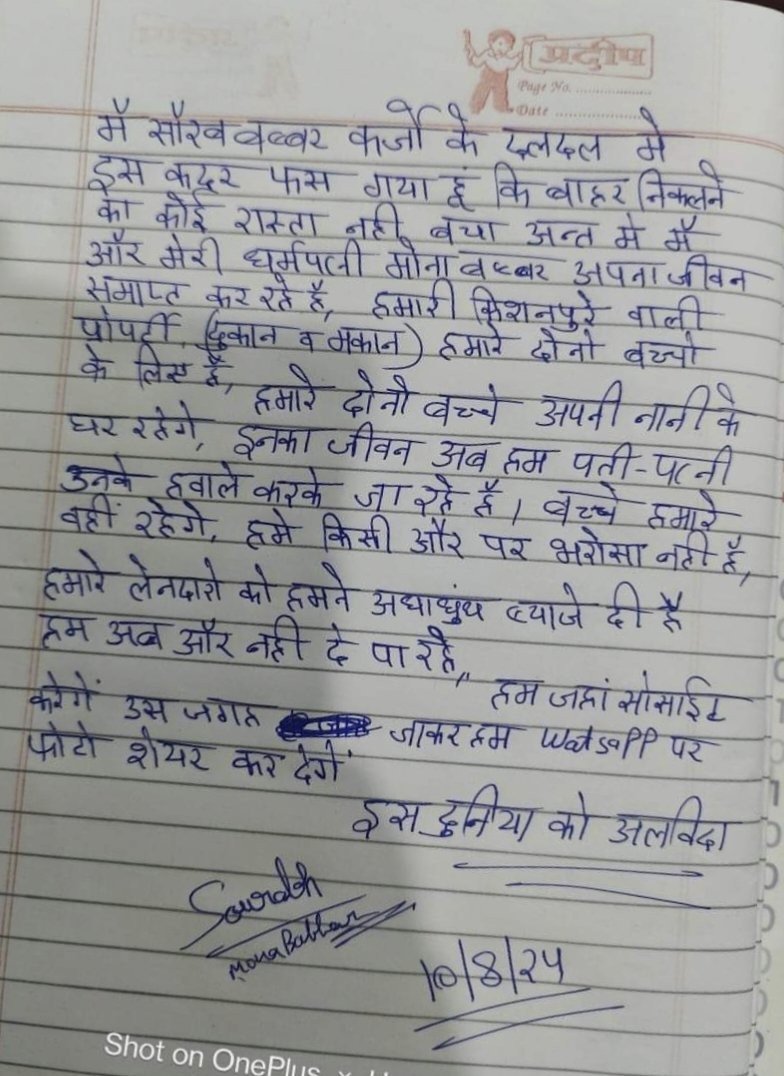 प्रदीप
Page No. ..................
Date ..................
मै सौरव बब्बर कर्जो के दलदल मे
इस कदर फस गया हूं कि बाहर निकलने
का कोई रास्ता नही बचा अन्त मे मैं
और मेरी धर्मपत्नी मोना बब्बर अपना जीवन
समाप्त कर रहे है, हमारी किशनपुरे वाली
प्रोपर्टी, (दुकान व मकान) हमारे दोनो बच्चो
के लिए है,
हमारे दोनो बच्चे अपनी नानी के
घर रहेगे, इनका जीवन अब हम पती-पत्नी
उनके हवाले करके जा रहे है। बच्चे हमारे
वहीं रहेगे, हमे किसी और पर भरोसा नही है,
हमारे लेनदारो को हमने अधाधुंध ब्याजे दी है
हम अब और नही दे पा रहे,,
हम जहां सोसाईट
करेगें उस जगह जाकर हम Watsapp पर
फोटो शेयर कर देगें
इस दुनिया को अलविदा
Sourabh
Mona Babbar
10/8/24
Shot on OnePlus